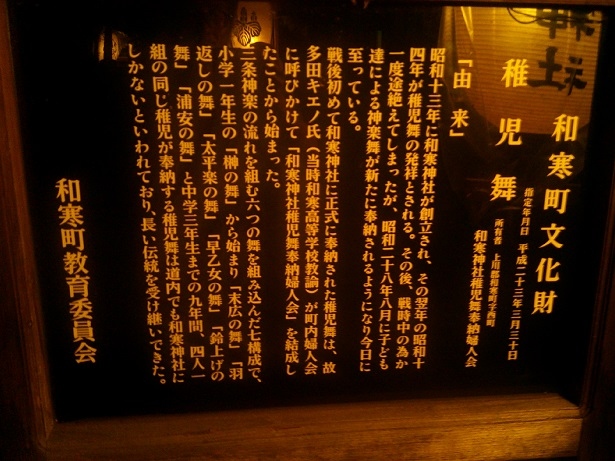 和寒町文化財
稚児舞
指定年月日 平成二十三年三月三十日
所有者 上川郡和寒町字西町
和寒神社稚児舞奉納婦人会
「由来」
昭和十三年に和寒神社が創立され、その翌年の昭和十
四年が稚児舞の発祥とされる。その後、戦時中の為か
一度途絶えてしまったが、昭和二十八年八月に子ども
達による神楽舞が新たに奉納されるようになり今日に
至っている。
戦後初めて和寒神社に正式に奉納された稚児舞は、故
多田キエノ氏(当時和寒高等学校教諭)が町内婦人会
に呼びかけて「和寒神社稚児舞奉納婦人会」を結成し
たことから始まった。
三条神楽の流れを組む六つの舞を組み込んだ七構成で、
小学一年生の「榊の舞」から始まり「末広の舞」「羽
返しの舞」「太平楽の舞」「早乙女の舞」「鈴上げの
舞」「浦安の舞」と中学三年生までの九年間、四人一
組の同じ稚児が奉納する稚児舞は道内でも和寒神社に
しかないといわれており、長い伝統を受け継いできた。
和寒町教育委員会